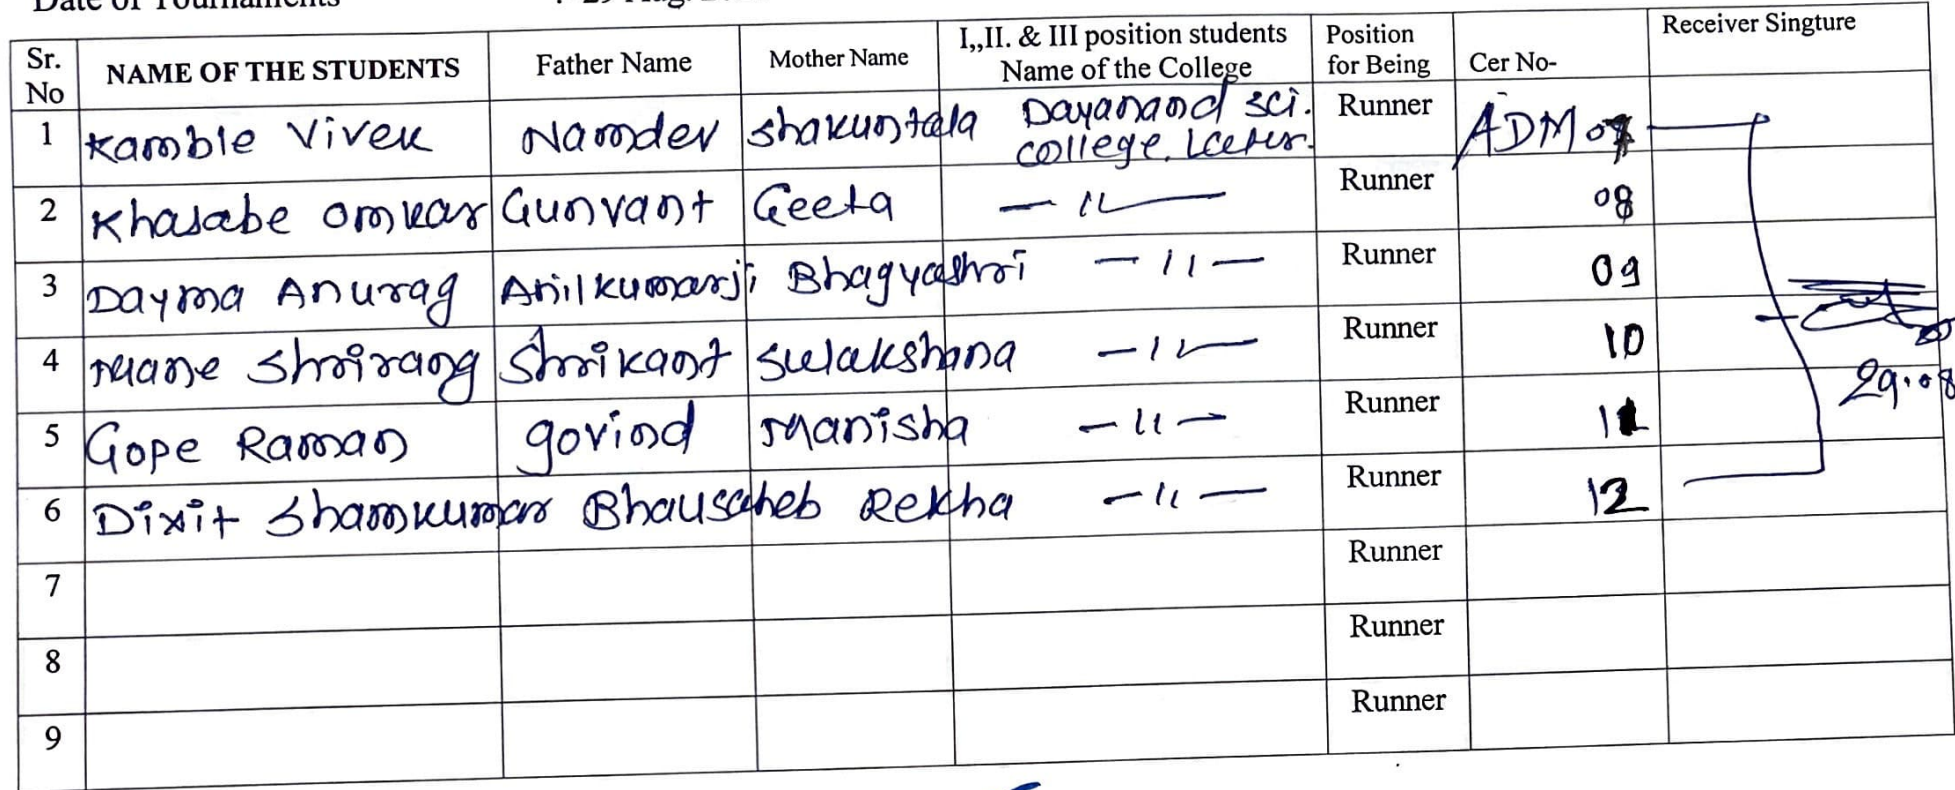 Date of Tournaments : 29 Aug.
Sr. No NAME OF THE STUDENTS Father Name Mother Name I,,II. & III position students Name of the College Position for Being Cer No- Receiver Singture
1 Kamble Vivek Namdev Shakuntala Dayanand sci. college, Latur. Runner ADM 07
2 Khasabe Omkar Gunvant Geeta — 11 — Runner 08
3 Dayma Anurag Anilkumarji Bhagyashri — 11 — Runner 09
4 Mane Shrirang Shrikant Sulakshana — 11 — Runner 10
5 Gope Raman govind Manisha — 11 — Runner 11
6 Dixit Shamkumar Bhausaheb Rekha — 11 — Runner 12
29.08
7 Runner
8 Runner
9 Runner